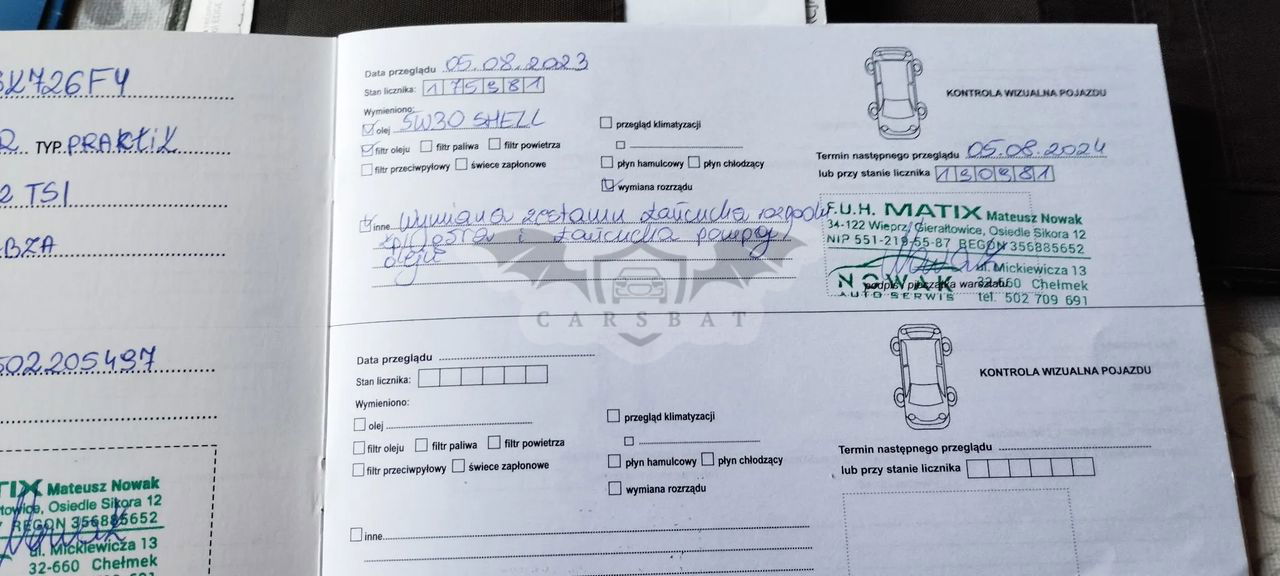 SK726FY
TYP. PRAKTIK
2 TSI
BZA
502205497
TIX Mateusz Nowak
towice, Osiedle Sikora 12
REGON 356885652
Nowak
ul. Mickiewicza 13
32-660 Chełmek
Data przeglądu 05.08.2023
Stan licznika: 175981
Wymieniono:
olej 5W30 SHELL
filtr oleju filtr paliwa filtr powietrza
filtr przeciwpyłowy świece zapłonowe
przegląd klimatyzacji
płyn hamulcowy płyn chłodzący
wymiana rozrządu
inne Wymiana zestawu łańcucha
i łańcucha pompy
oleju
KONTROLA WIZUALNA POJAZDU
Termin następnego przeglądu 05.08.2024
lub przy stanie licznika 190981
F.U.H. MATIX Mateusz Nowak
34-122 Wieprz, Gierałtowice, Osiedle Sikora 12
NIP 551-219-55-87 REGON 356885652
Nowak
ul. Mickiewicza 13
NOWAK 32-660 Chełmek
podpis i pieczątka warsztatu
AUTO SERWIS tel. 502 709 691
CARSBAT
Data przeglądu
Stan licznika:
Wymieniono:
olej
filtr oleju filtr paliwa filtr powietrza
filtr przeciwpyłowy świece zapłonowe
przegląd klimatyzacji
płyn hamulcowy płyn chłodzący
wymiana rozrządu
inne
KONTROLA WIZUALNA POJAZDU
Termin następnego przeglądu
lub przy stanie licznika